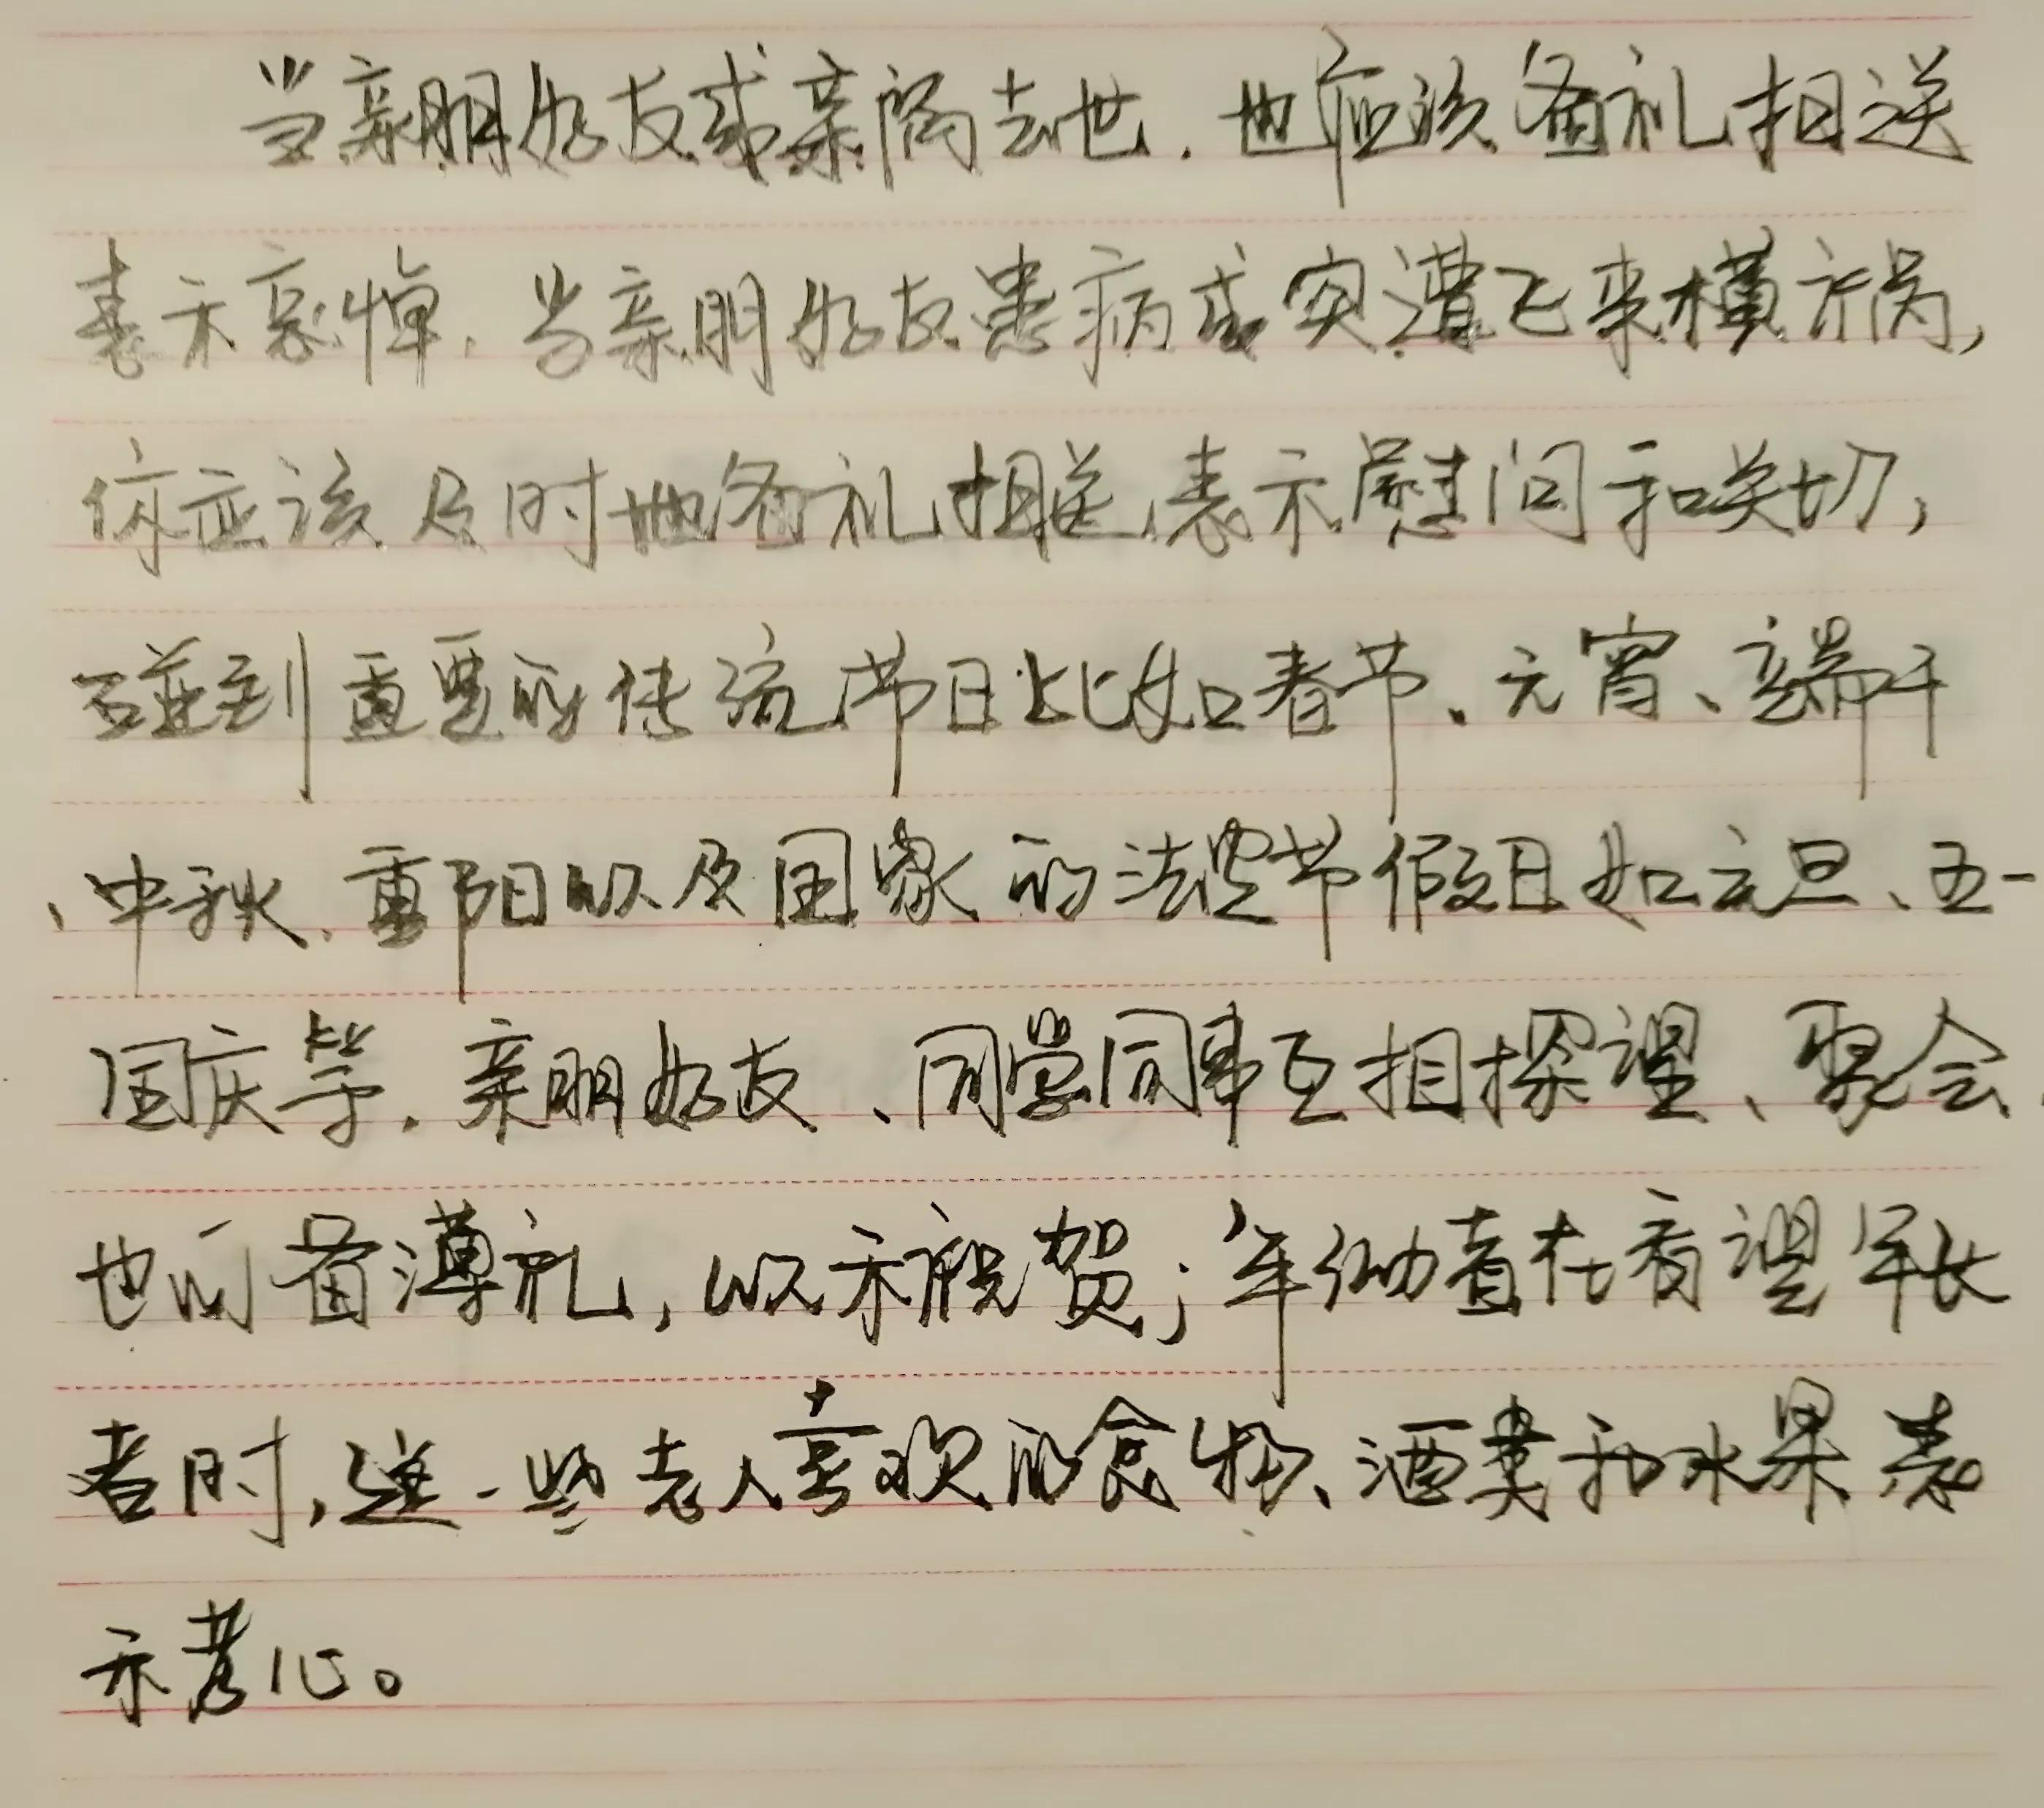 当亲朋好友或亲属去世，也应该备礼相送
表示哀悼。当亲朋好友患病或突遭飞来横祸，
你应该及时地备礼相送表示慰问和关切，
碰到重要的传统节日比如春节、元宵、端午
、中秋、重阳以及国家的法定节假日如元旦、五一
国庆等，亲朋好友、同学同事互相探望、聚会，
也同备薄礼，以示祝贺；年幼者在看望年长
者时，送一些老人喜欢的食物、酒类和水果表
示孝心。